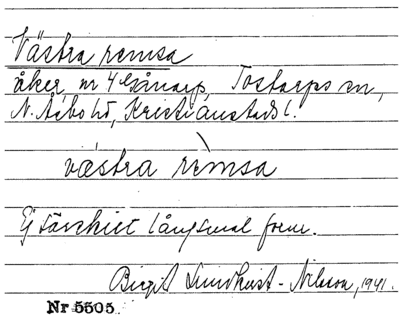 Västra remsa
åker, nr 4 Gånarp, Tostarps sn,
N. Åsbo hd, Kristianstads l.
västra remsa
Ej särskilt långsmal form.
Birgit Lundkvist-Nilsson, 1941.
Nr 5505